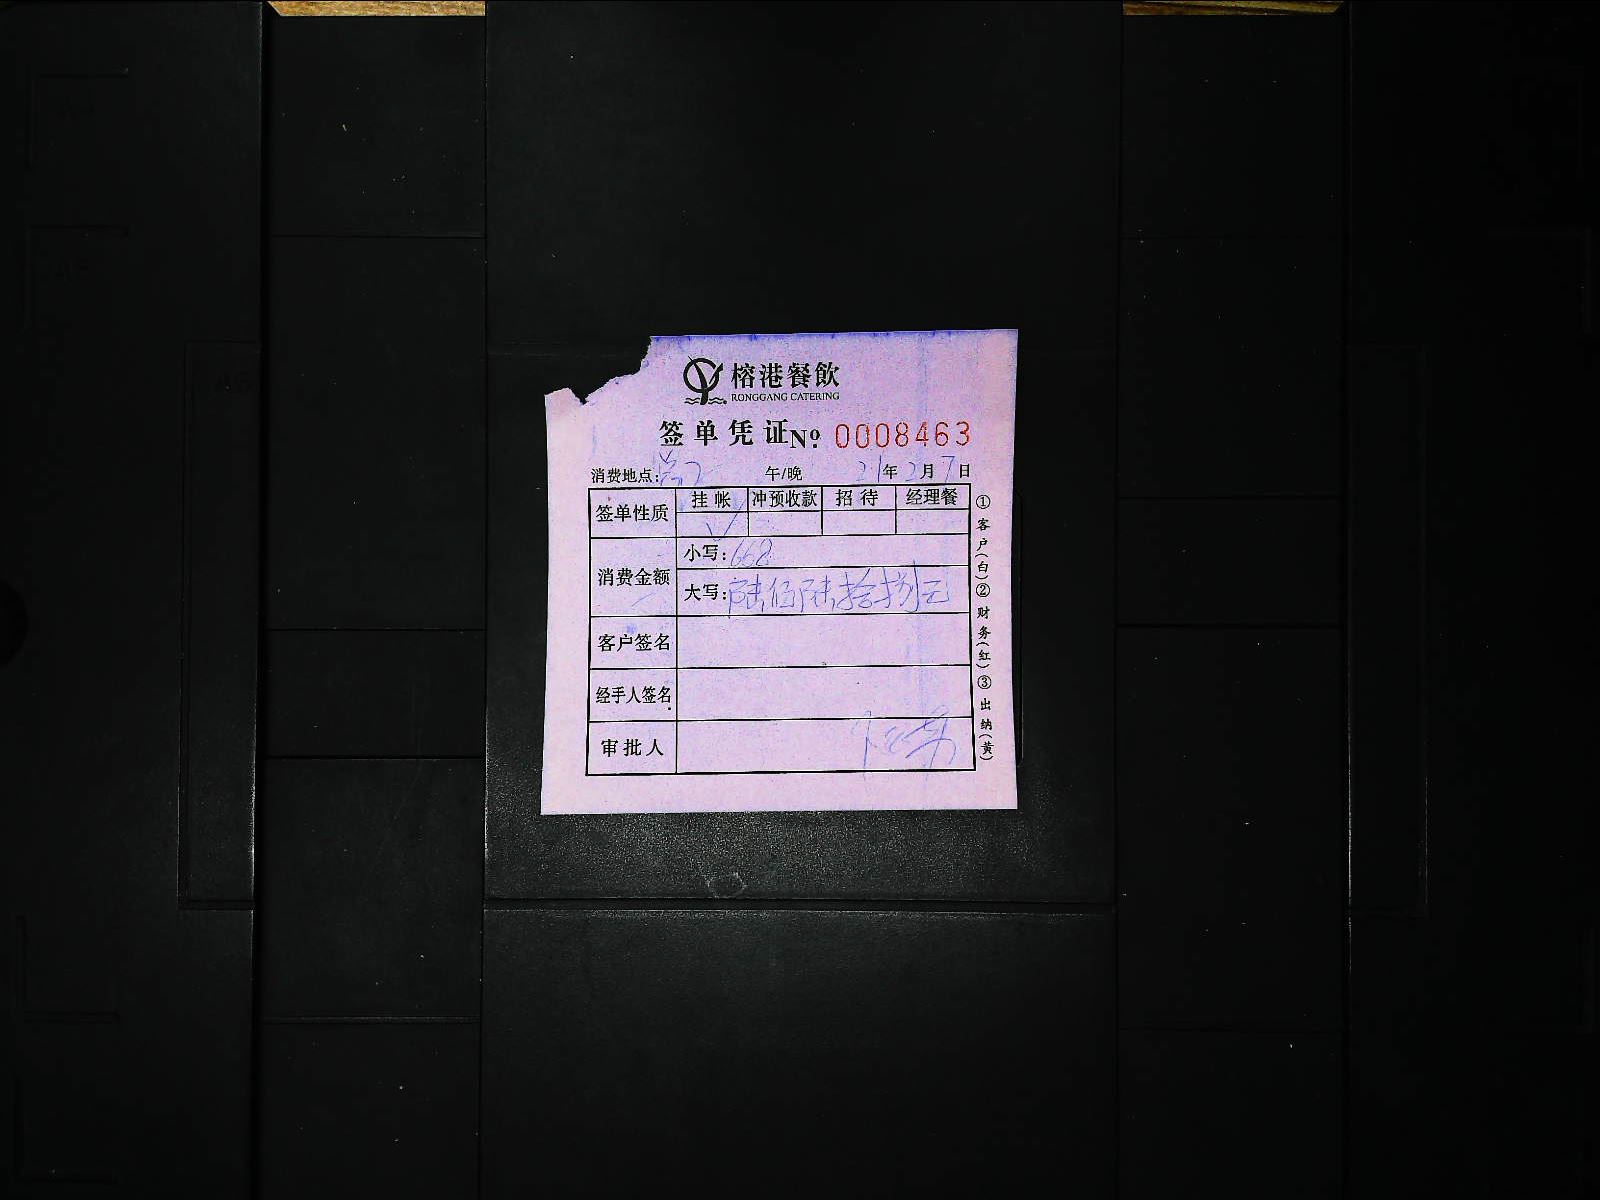 榕港餐飲
RONGGANG CATERING
签单凭证No. 0008463
消费地点: 午/晚 21年2月7日
签单性质 挂帐 冲预收款 招待 经理餐
✓
消费金额
小写:668
大写:陆佰陆拾捌元
客户签名
经手人签名
审批人
①客户(白)②财务(红)③出纳(黄)